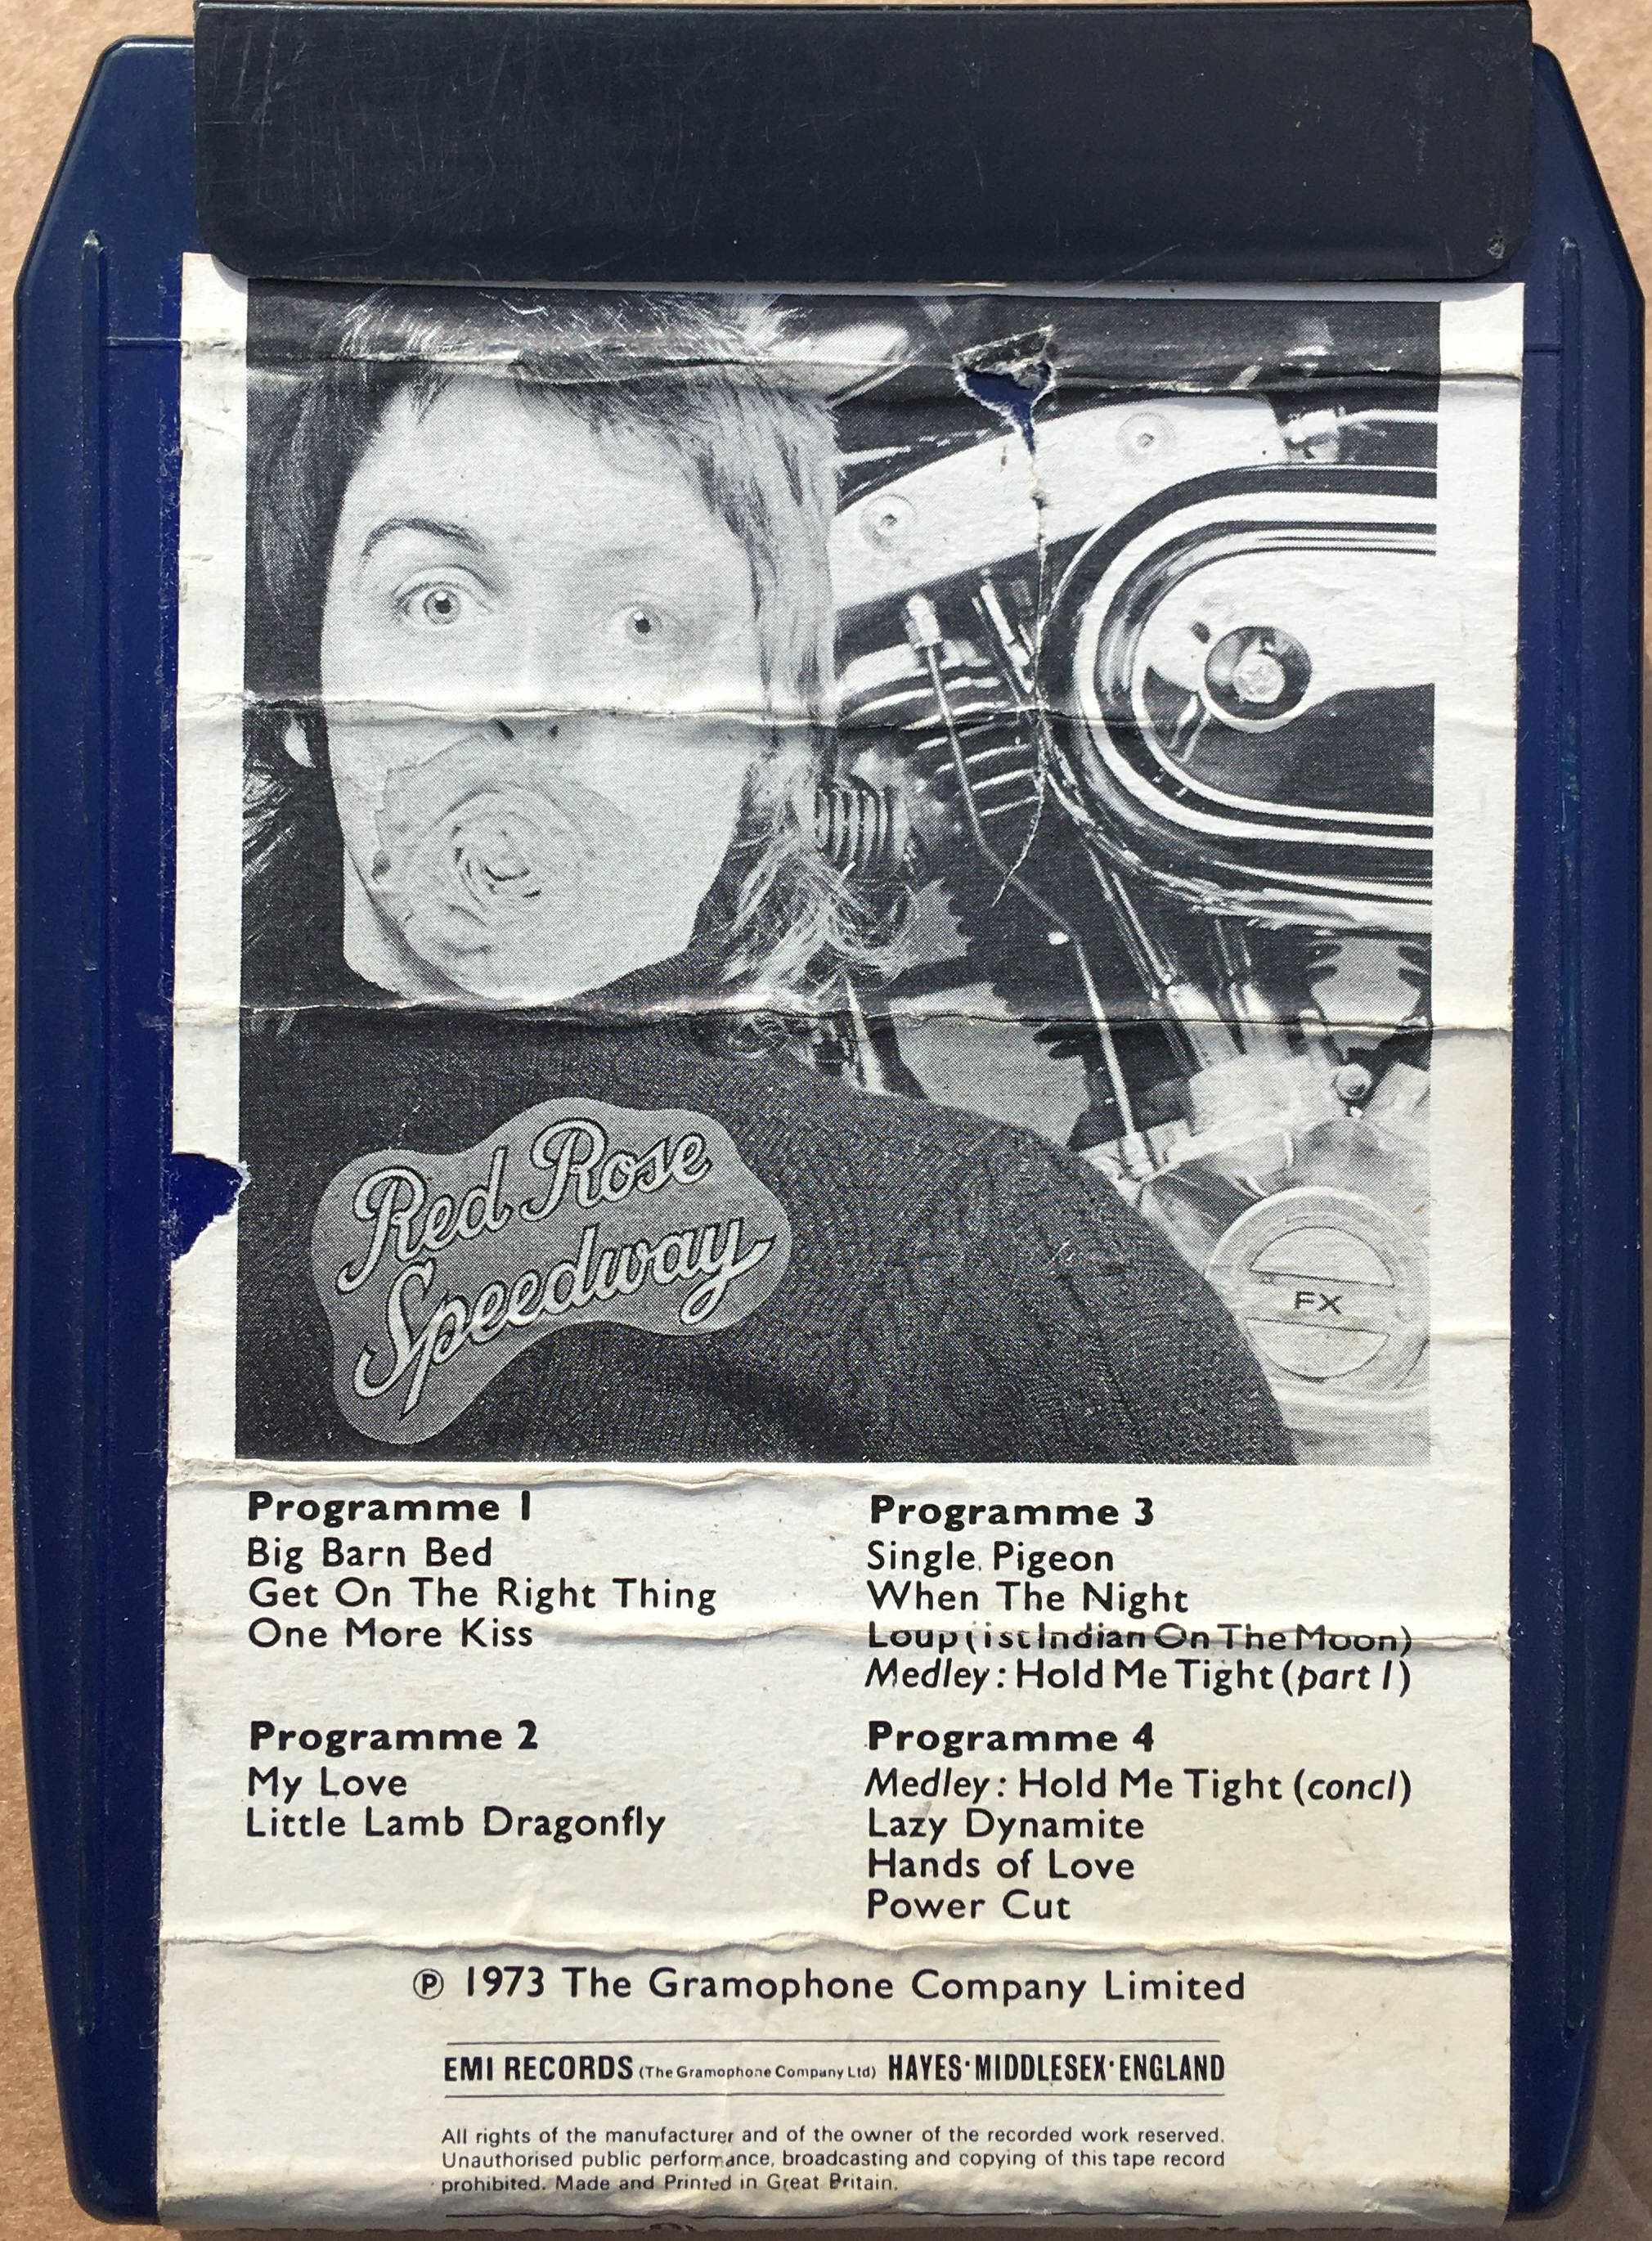 FX
Red Rose
Speedway
Programme 1
Big Barn Bed
Get On The Right Thing
One More Kiss
Programme 2
My Love
Little Lamb Dragonfly
Programme 3
Single Pigeon
When The Night
Loup (1st Indian On The Moon)
Medley: Hold Me Tight (part 1)
Programme 4
Medley: Hold Me Tight (concl)
Lazy Dynamite
Hands of Love
Power Cut
℗ 1973 The Gramophone Company Limited
EMI RECORDS (The Gramophone Company Ltd) HAYES·MIDDLESEX·ENGLAND
All rights of the manufacturer and of the owner of the recorded work reserved.
Unauthorised public performance, broadcasting and copying of this tape record
prohibited. Made and Printed in Great Britain.